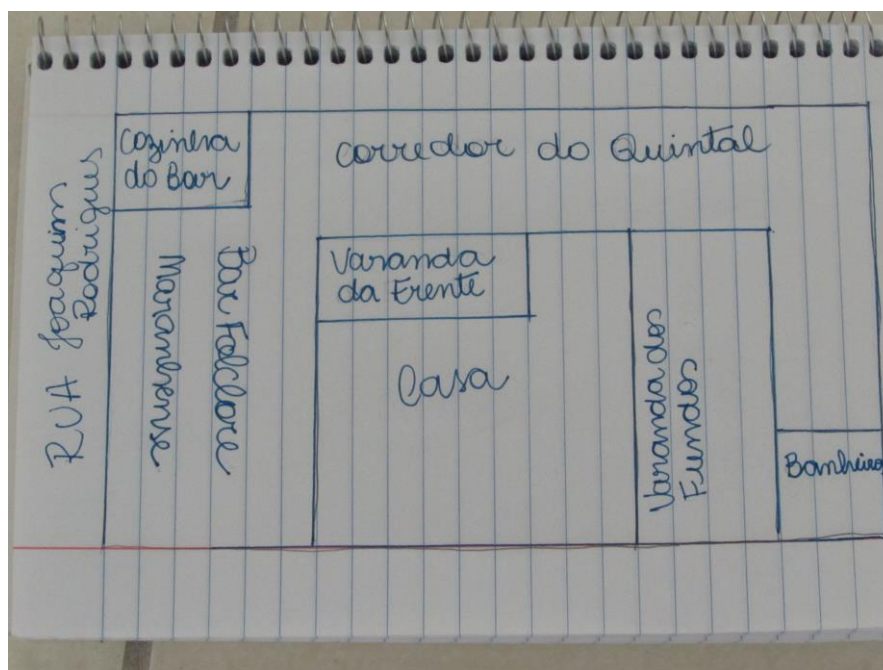 RUA Joaquim
Rodrigues
Cozinha
do Bar
Bar Folclore
Maranhense
Corredor do Quintal
Varanda
da Frente
Casa
Varanda dos
Fundos
Banheiro